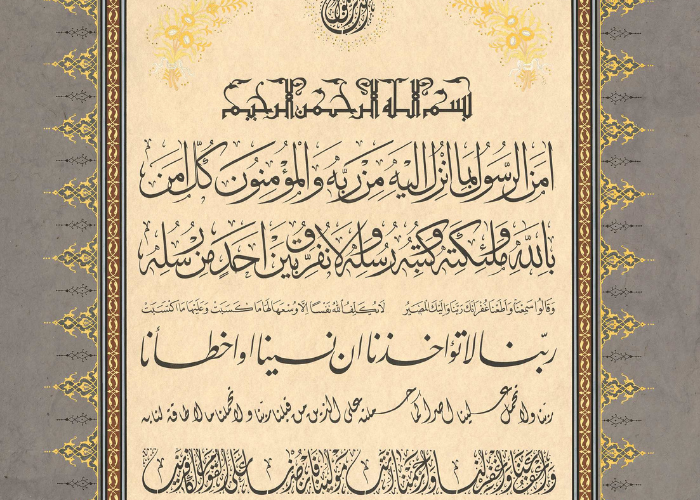 بسم الله الرحمن الرحيم
امن الرسول بما انزل اليه من ربه والمؤمنون كل امن
بالله وملئكته وكتبه ورسله لا نفرق بين احد من رسله
وقالوا سمعنا واطعنا غفرانك ربنا واليك المصير لا يكلف الله نفسا الا وسعها لها ما كسبت وعليها ما اكتسبت
ربنا لا تؤاخذنا ان نسينا او اخطأنا
ربنا ولا تحمل علينا اصرا كما حملته على الذين من قبلنا ربنا ولا تحملنا ما لا طاقة لنا به
واعف عنا واغفر لنا وارحمنا انت مولينا فانصرنا على القوم الكافرين